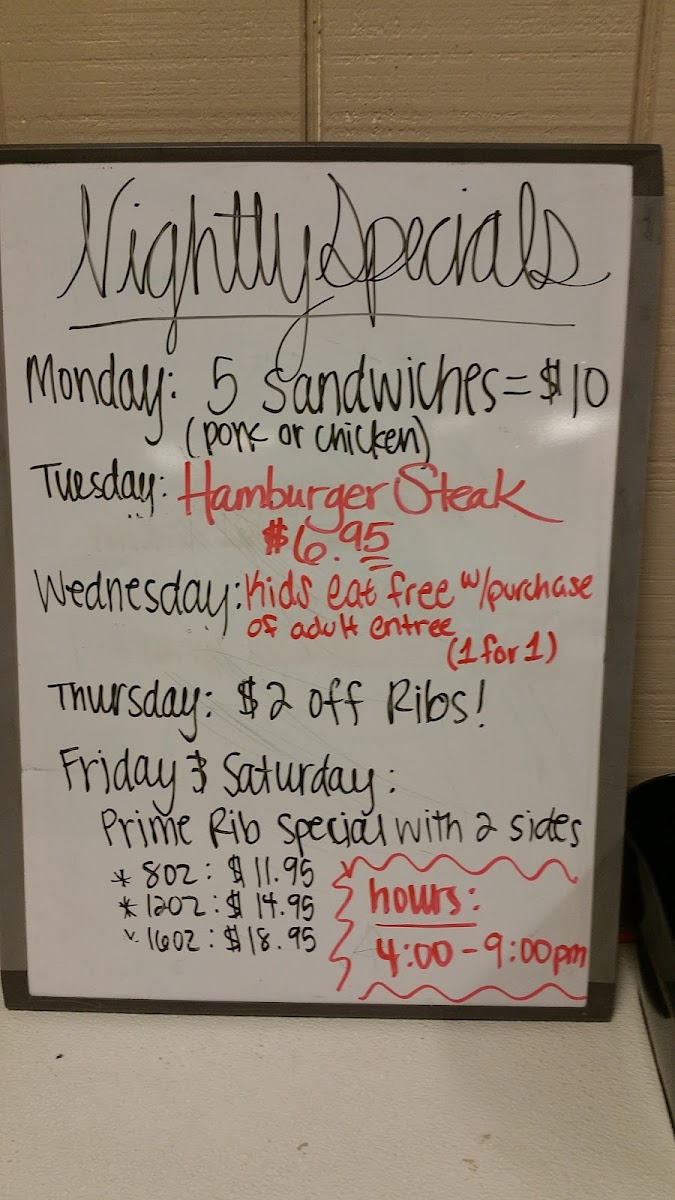 Nightly Specials
Monday: 5 Sandwiches = $10
(pork or chicken)
Tuesday: Hamburger Steak
$6.95
Wednesday: Kids eat free w/purchase
of adult entree
(1 for 1)
Thursday: $2 off Ribs!
Friday & Saturday:
Prime Rib Special with 2 sides
* 8oz: $11.95
* 12oz: $14.95
* 16oz: $18.95
hours:
4:00 - 9:00pm